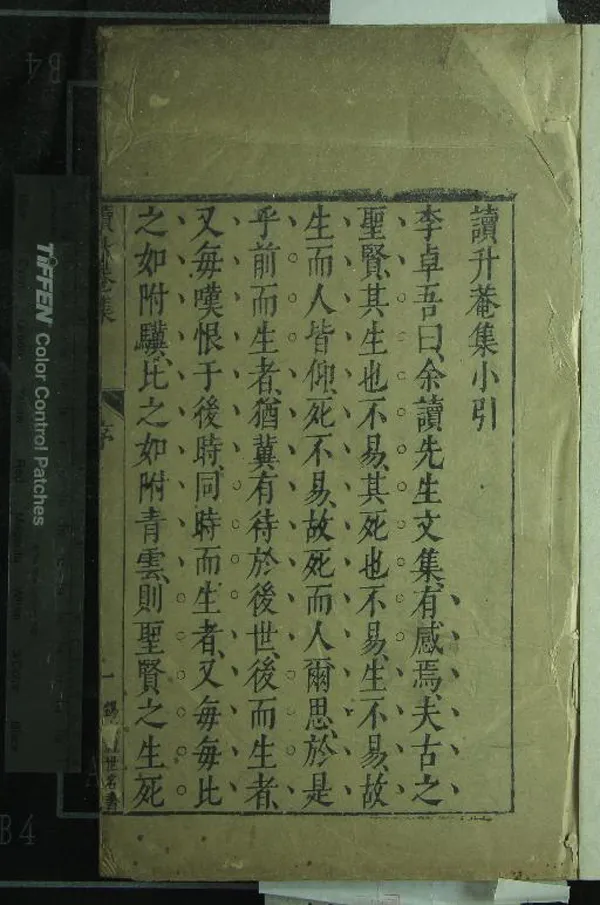 讀升菴集小引
李卓吾曰、余讀先生文集、有感焉、夫古之
聖賢、其生也不易、其死也不易、生不易、故
生而人皆仰、死不易、故死而人爾思、於是
乎前而生者、猶冀有待於後世、後而生者、
又每嘆恨于後時、同時而生者、又每每比
之如附驥、比之如附青雲、則聖賢之生死
讀升菴集
序
一
世名書
TIFFEN Color Control Patches
B4
B4